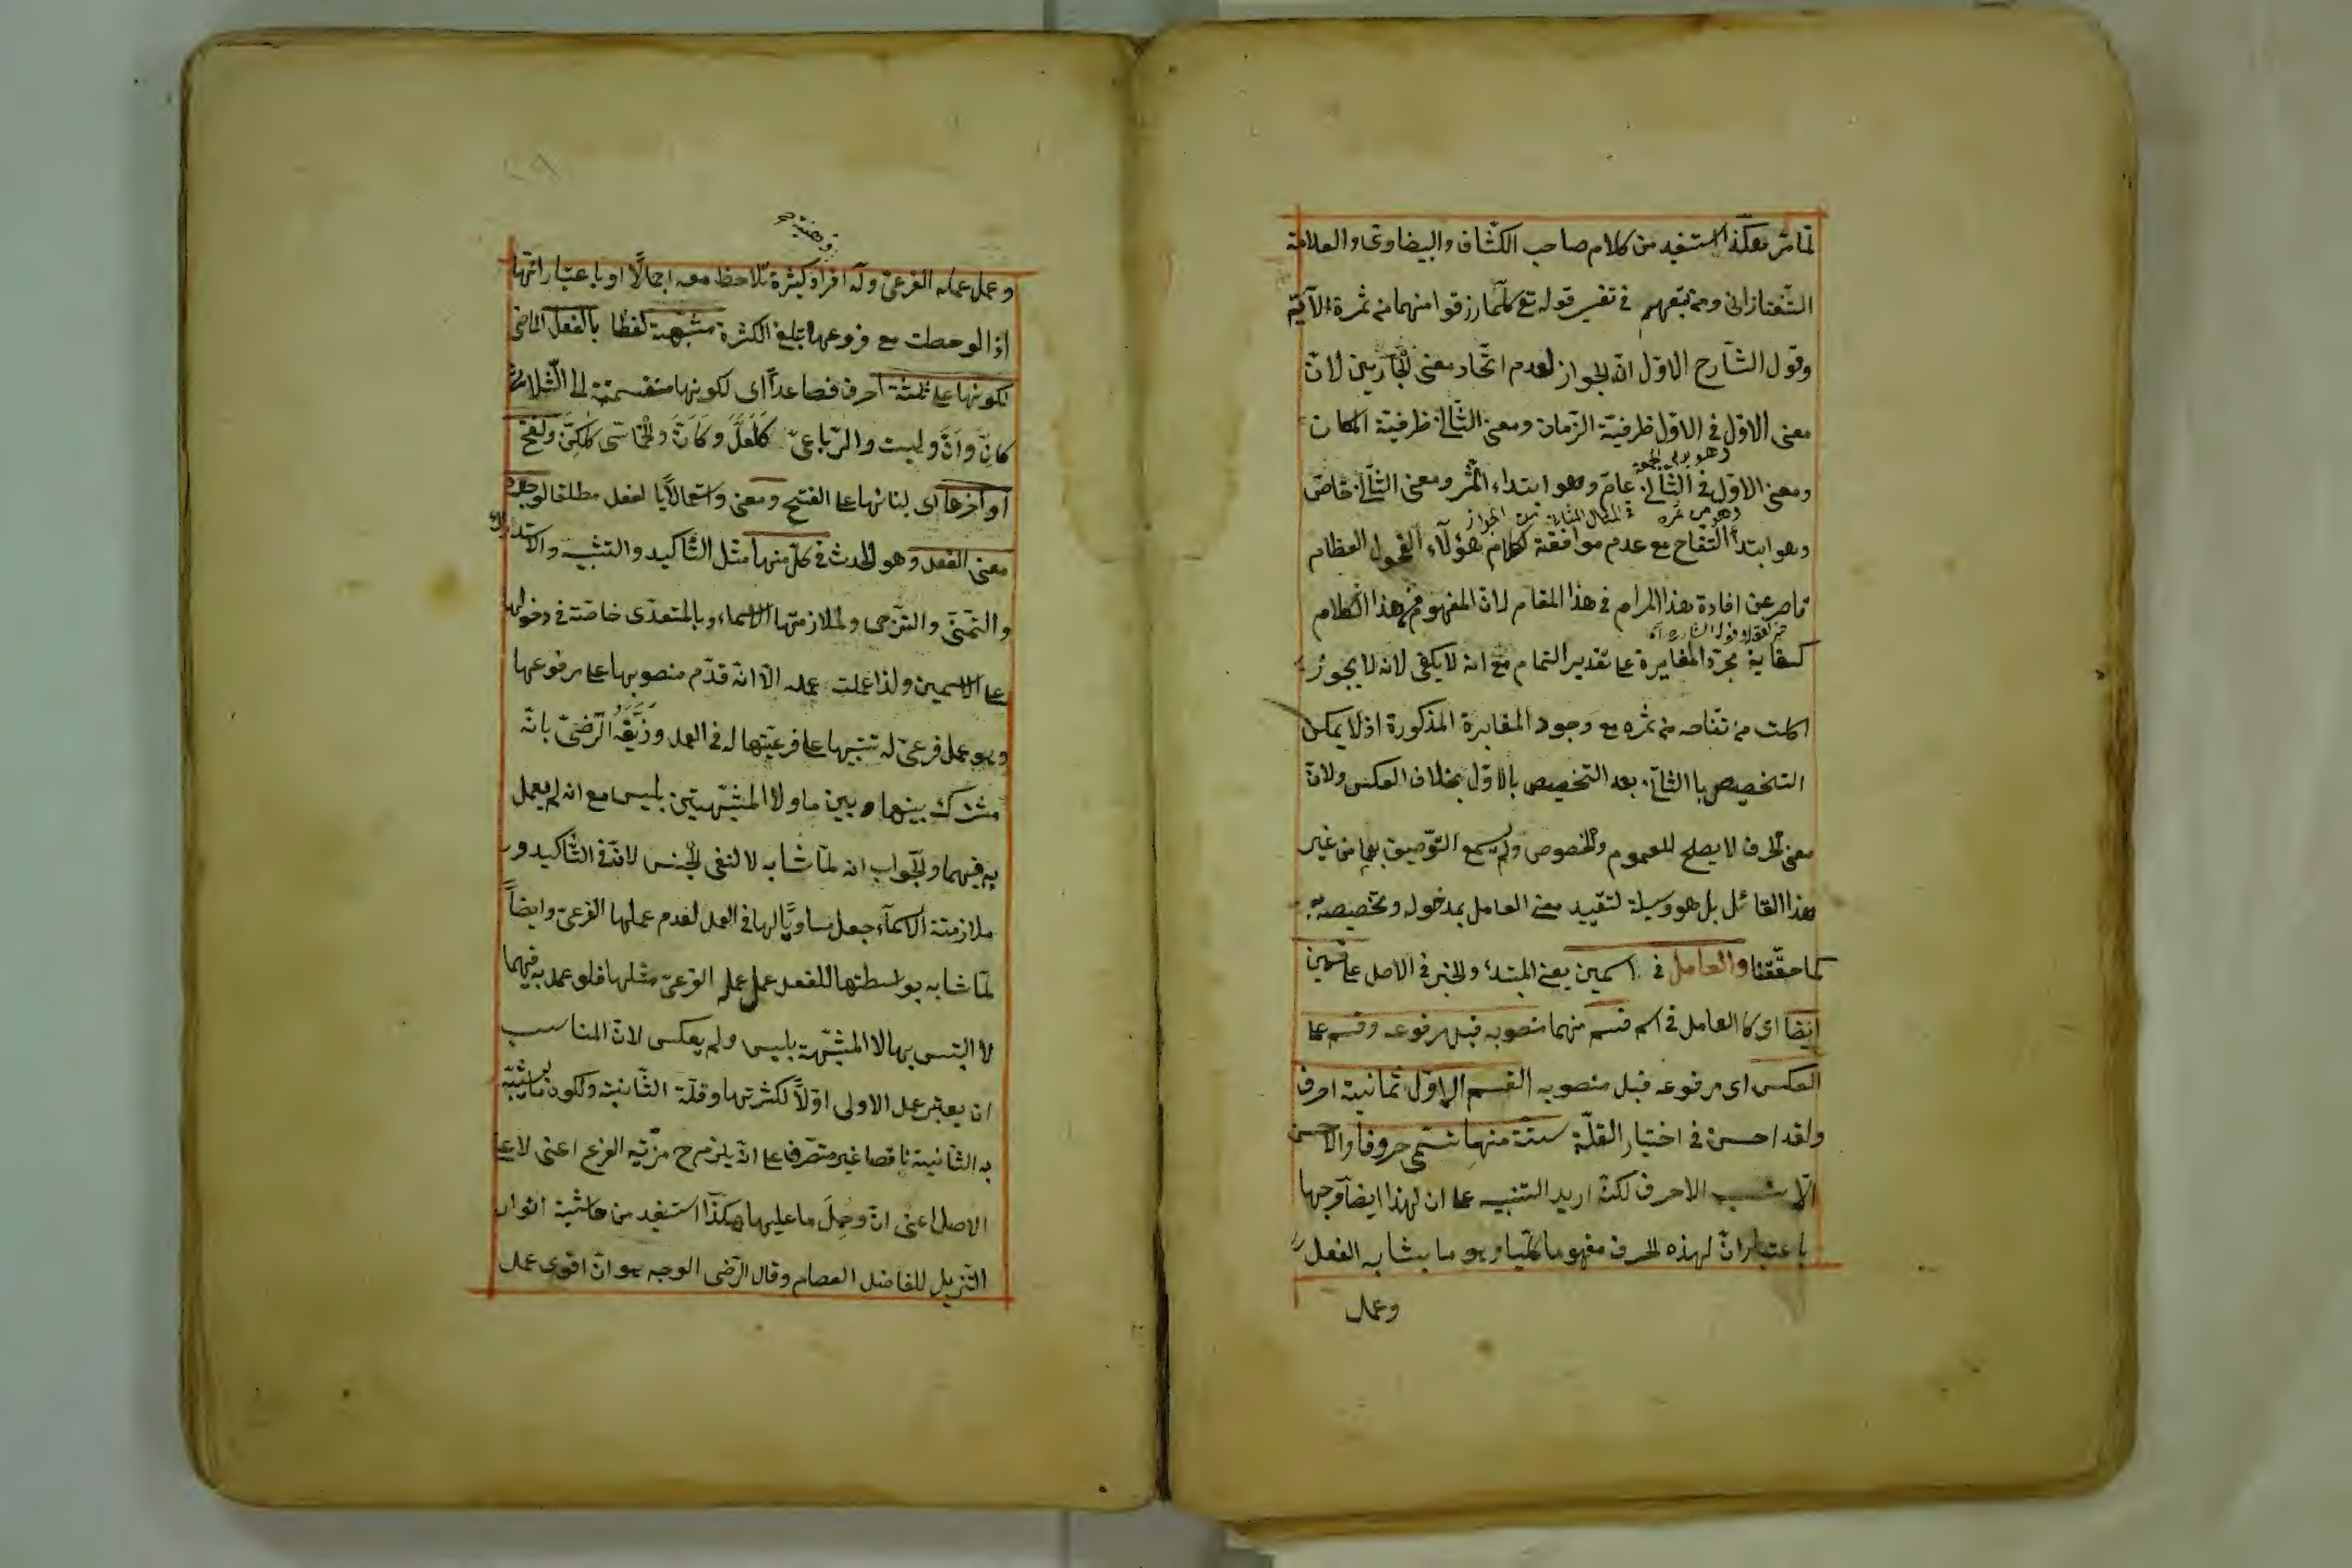 لما مر هكذا استفيد من كلام صاحب الكشاف والبيضاوي والعلامة
التفتازاني ومن تبعهم في تفسير قوله تع كلما رزقوا منها من ثمرة الآية
وقول الشارح الاول ان الجواز لعدم اتحاد معنى الجارين لان
معنى الاول في الاول ظرفية الزمان ومعنى الثاني ظرفية المكان
ومعنى الاول في الثاني عام وهو ابتداء الثمر ومعنى الثاني خاص
وهو ابتداء التفاح مع عدم موافقة كلام هؤلاء الفحول العظام
قاصر عن افادة هذا المرام في هذا المقام لان المفهوم من هذا الكلام
كفاية مجرد المغايرة على تقدير التمام مع انه لا يكفي لانه لا يجوز
اكلت من تفاحه من ثمره مع وجود المغايرة المذكورة اذ لا يمكن
التخصيص بالثاني بعد التخصيص بالاول بخلاف العكس ولان
معنى الحرف لا يصلح للعموم والخصوص ولم يسمع التوصيف بهما من غير
هذا القائل بل هو وسيلة لتقييد معنى العامل بمدخوله وتخصيصه به
كما حققنا والعامل في اسمين يعني المبتدأ والخبر في الاصل على قسمين
ايضا اى كالعامل في اسم قسم منهما منصوبه قبل مرفوعه وقسم على
العكس اى مرفوعه قبل منصوبه القسم الاول ثمانية احرف
ولقد احسن في اختيار القلة ستة منها تسمى حروفا والاحسن
الانسب الاحرف لكنه اريد التنبيه على ان لهذا ايضا وجها
باعتبار ان لهذه الحرف مفهوما كليا وهو ما يشابه الفعل
وعمل
وعمل عمله الفرعى وله افراد كثيرة تلاحظ معه اجمالا او باعتبار انها
اذا لوحظت مع فروعها تبلغ الكثرة مشبهة لفظا بالفعل الماضى
لكونها على ثلثة احرف فصاعدا اى لكونها منقسمة الى الثلاثى
كان وان وليت والرباعى كلعل وكان والخماسى كلكن ولفتح
اواخرها اى لبنائها على الفتح ومعنى واستعمالا بالفعل مطلقا لوجود
معنى الفعل وهو الحدث في كل منها مثل التأكيد والتشبيه والاستدراك
والتمنى والترجى ولملازمتها الاسماء وبالمتعدى خاصة في دخولها
على الاسمين ولذا عملت عمله الا انه قدم منصوبها على مرفوعها
وهو عمل فرعى له تنبيها على فرعيتها له في العمل وزيفه الرضى بانه
مشترك بينها وبين ما ولا المشبهتين بليس مع انه لم يعمل
به فيهما والجواب انه لما شابه لا لنفى الجنس لان في التأكيد و
ملازمتة الاسماء جعل مساويا لها في العمل لعدم عملها الفرعى وايضا
لما شابه بواسطتها للفعل عمل عمله الفرعى مثلها فلو عمل به فيهما
لا التبس بها لا المشبهة بليس ولم يعكس لان المناسب
ان يعتبر عمل الاولى اولا لكثرتها وقلة الثانية ولكون ما يشبه
به الثانية ناقصا غير متصرف على انه يلزم ح مزية الفرع اعنى لا على
الاصل اعنى ان وحمل ما عليها هكذا استفيد من حاشية انوار
التنزيل للفاضل العصام وقال الرضى الوجه هو ان اقوى عمل